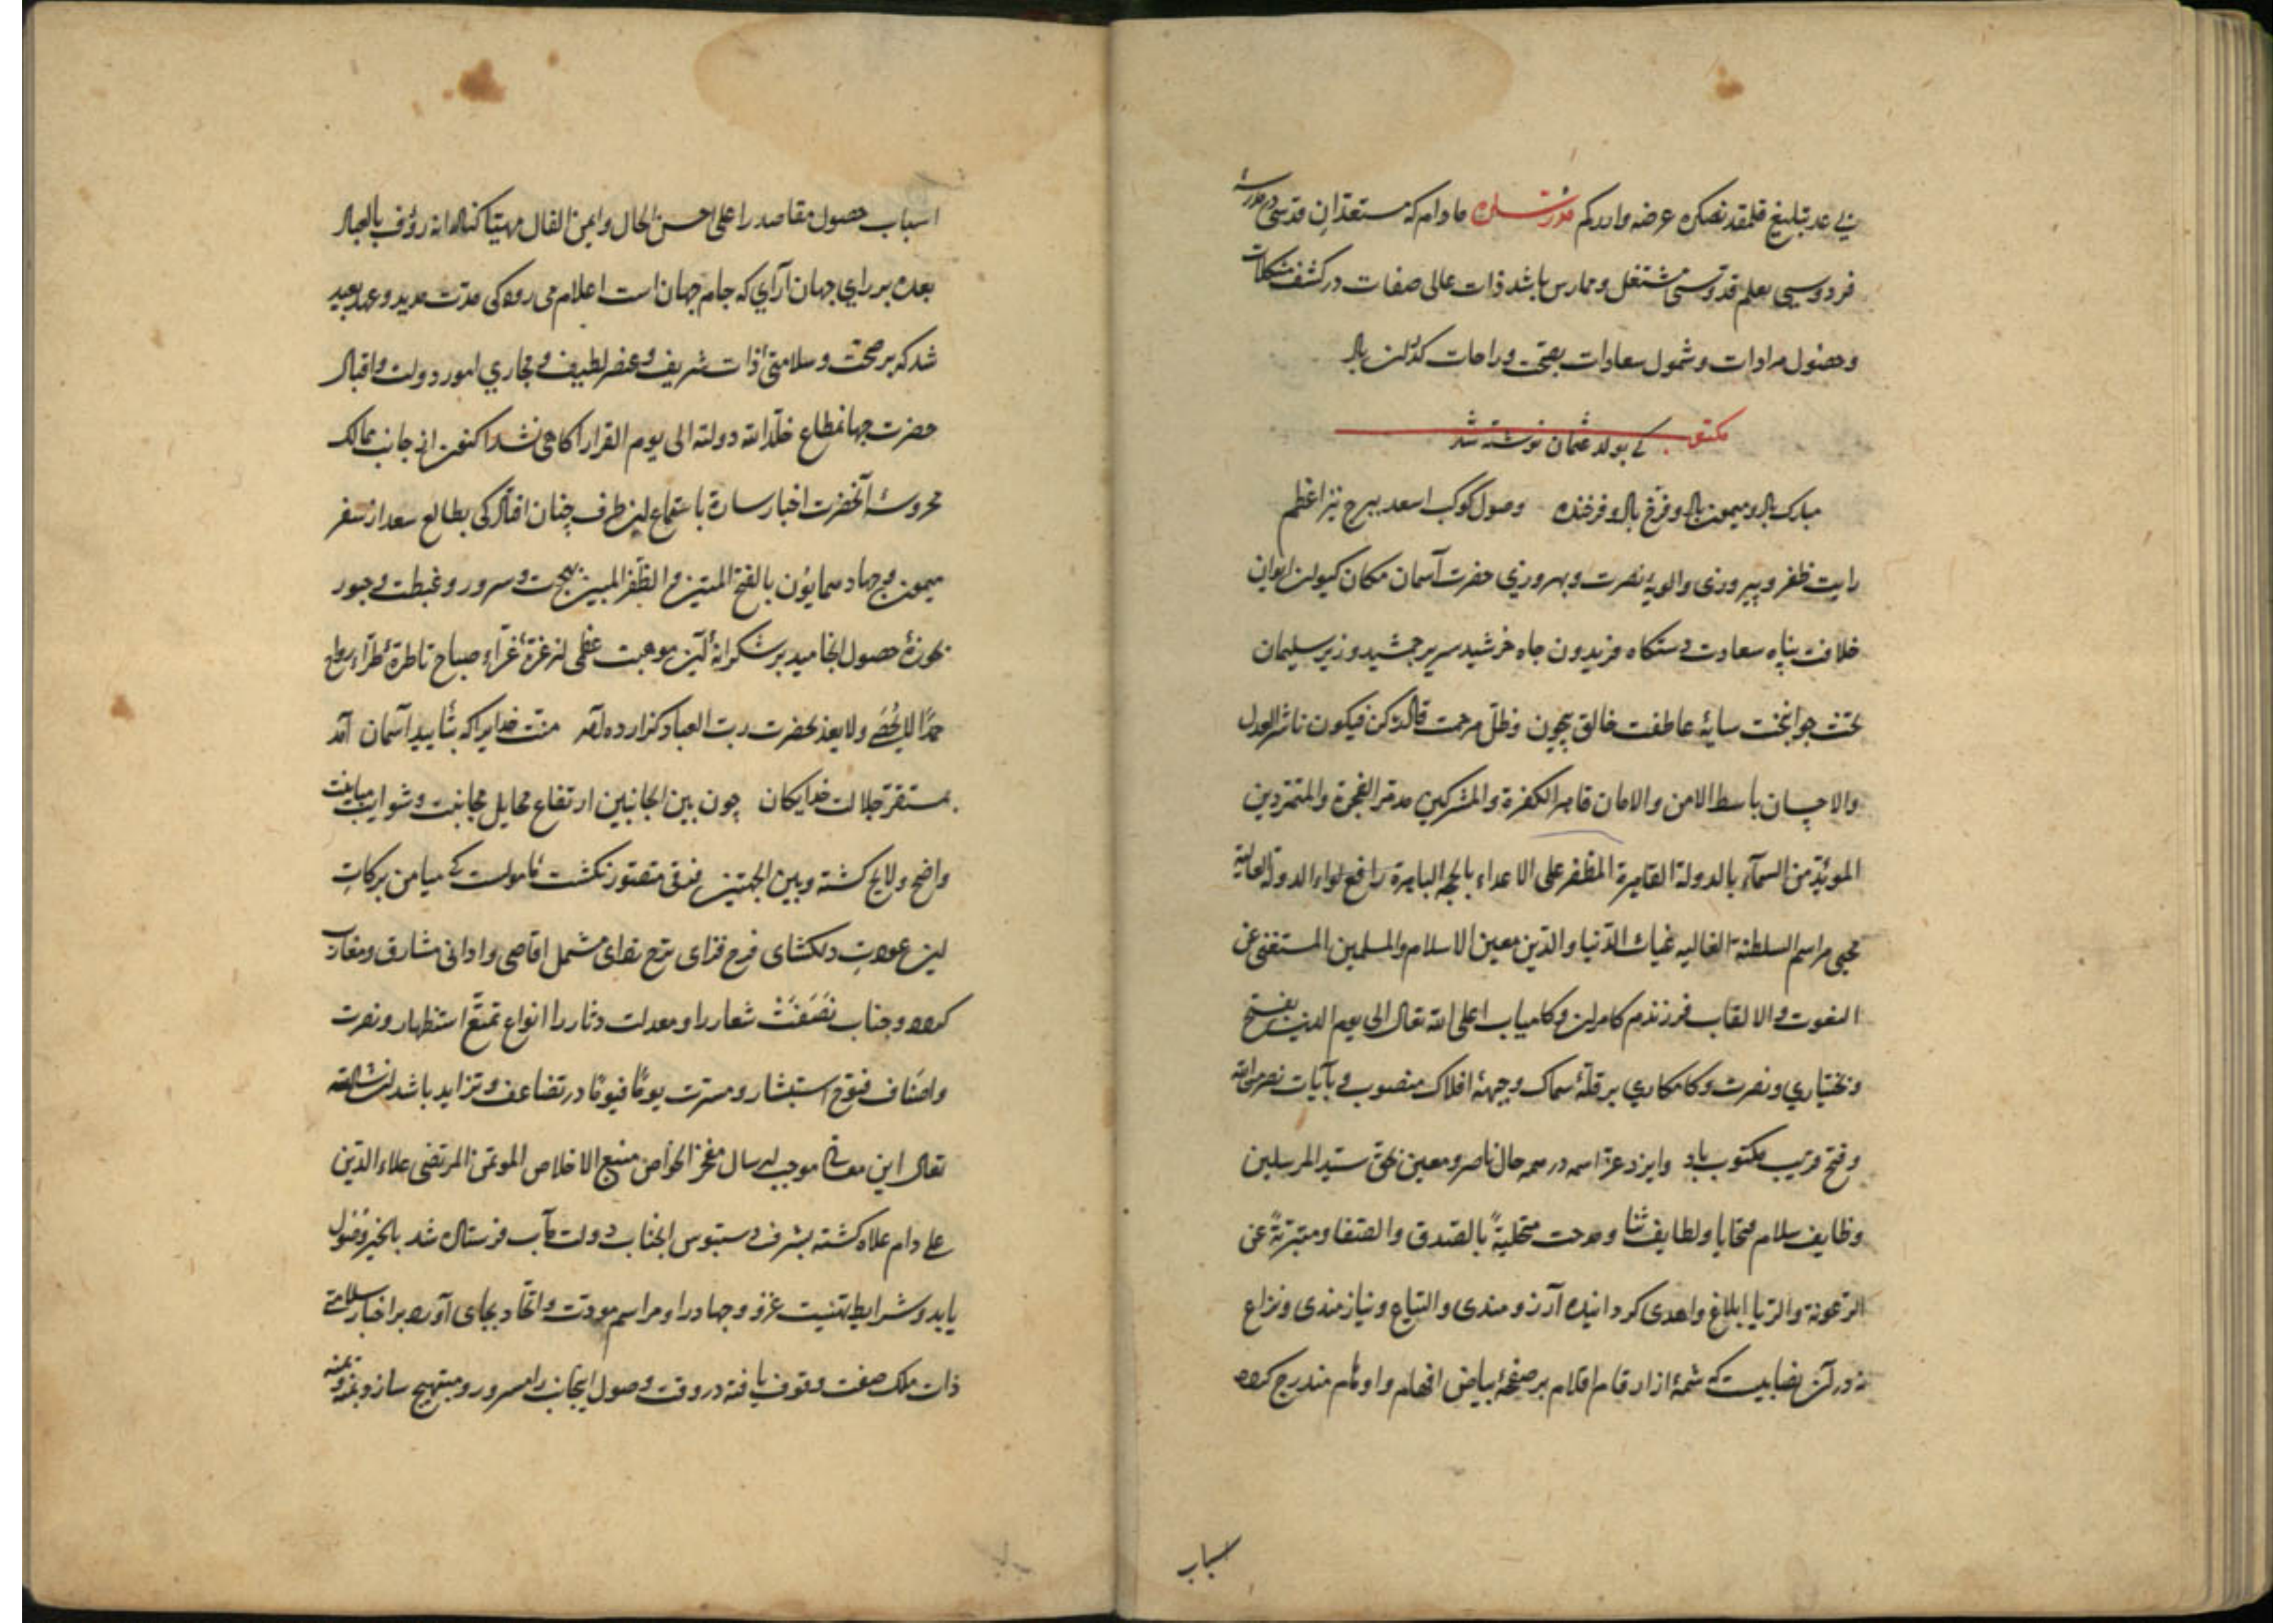 تبلیغ قلمقدنصکره عرضه واردرکم مادام که مستعدان قدسی در مدرسهٔ
فردوسی بعلم قدوسی مشتغل وممارس باشد ذات عالی صفات در کشف مشکلات
وحصول مرادات وشمول سعادات بصحت وراحات کذران باد
مکتوب که بولد عثمان نوشته شد
مبارک باد ومیمون باد وفرّخ باد وفرخنده وصول کوکب اسعد ببرج نیّر اعظم
رایت ظفر وپیروزی والویهٔ نصرت وبهروزی حضرت آسمان مکان کیوان ایوان
خلافت پناه سعادت دستکاه فریدون جاه خرشید سریر جمشید وزیر سلیمان
تخت جوانبخت سایهٔ عاطفت خالق بیچون وظلّ مرحمت قائل کن فیکون ناشر العدل
والاحسان باسط الامن والامان قاهر الکفرة والمشرکین مدمّر الفجرة والمتمرّدین
المویّد من السمآء بالدولة القاهرة المظفر علی الاعداء بالحجة الباهرة رافع لواء الدولة العالیة
محیی مراسم السلطنة الغالیه غیاث الدّنیا والدّین معین الاسلام والمسلمین المستغنی عن
النعوت والالقاب فرزندم کامران وکامیاب اعلی الله تعالی الی یوم الدین بفتح
وبختیاری ونصرت وکامکاری بر قلّهٔ سماک وجبههٔ افلاک منصوب وبآیات نصر من الله
وفتح قریب مکتوب باد وایزد عزّ اسمه در همه حال ناصر ومعین بحق سیّد المرسلین
وظایف سلام وتحایا ولطایف ثنا ومدحت متحلیةً بالصّدق والصّفا ومتبرّیةً عن
الرّعونة والرّیا ابلاغ واهدی کردانیده آرزومندی والتیاع ونیازمندی ونزاع
نه در آن نصابیست که شمهٔ از ارقام اقلام بر صفحهٔ بیاض افهام واوهام مندرج کردد
اسباب
اسباب حصول مقاصد را علی احسن الحال وایمن الفال مهیّا کناد انه رؤف بالعباد
بعده بر رای جهان آرای که جام جهان است اعلام می رود کی مدّت مدید وعهد بعید
شد که بر صحت وسلامتی ذات شریف وعنصر لطیف ومجاری امور دولت واقبال
حضرت جهانمطاع خلّد الله دولته الی یوم القرار آکاهی نشد اکنون از جانب ممالک
محروسهٔ آنحضرت اخبار سارّة باستماع این طرف چنان افتاد کی بطالع سعد از سفر
میمون وجهاد همایون بالفتح المتین والظّفر المبین ببهجت وسرور وغبطت وحبور
بحوزهٔ حصول انجامید بر شکرانهٔ این موهبت عظمی از غرّهٔ غرّاء صباح تا طرّهٔ طرّاء رواح
حمدًا لا یحصی ولا یعدّ بحضرت ربّ العباد کزارده آمد منّت خدایرا که بتأیید آسمان آمد
بمستقرّ جلالت خدایکان چون بین الجانبین ارتفاع مخایل مجانبت وشوایب مباینت
واضح ولایح کشته وبین الجهتین فرقی متصوّر نکشت مأمولست که میامن برکات
این عودت دلکشای فرح فزای ترح زدای مشمل اقاصی وادانی مشارق ومغارب
کردد وجناب نصفت شعار را ومعدلت دثار را انواع تمتّع استظهار ونصرت
واصناف فتوح استبشار ومسرّت یومًا فیومًا در تضاعف وتزاید باشد ان شاء الله
تعالی این معانی موجب ارسال مفخر الخواص منبع الاخلاص الموتمن المرتضی علاء الدّین
علی دام علاه کشته بشرف دستبوس انجناب دولت مآب فرستاده شد بالخیر وصول
یابد وشرایط تهنیت غزو وجهاد را ومراسم مودّت واتّحاد بجای آورد بر اخبار سلامتی
ذات ملک صفت وقوف یافته در وقت وصول اینجانب را مسرور ومبتهج سازد بمنّه